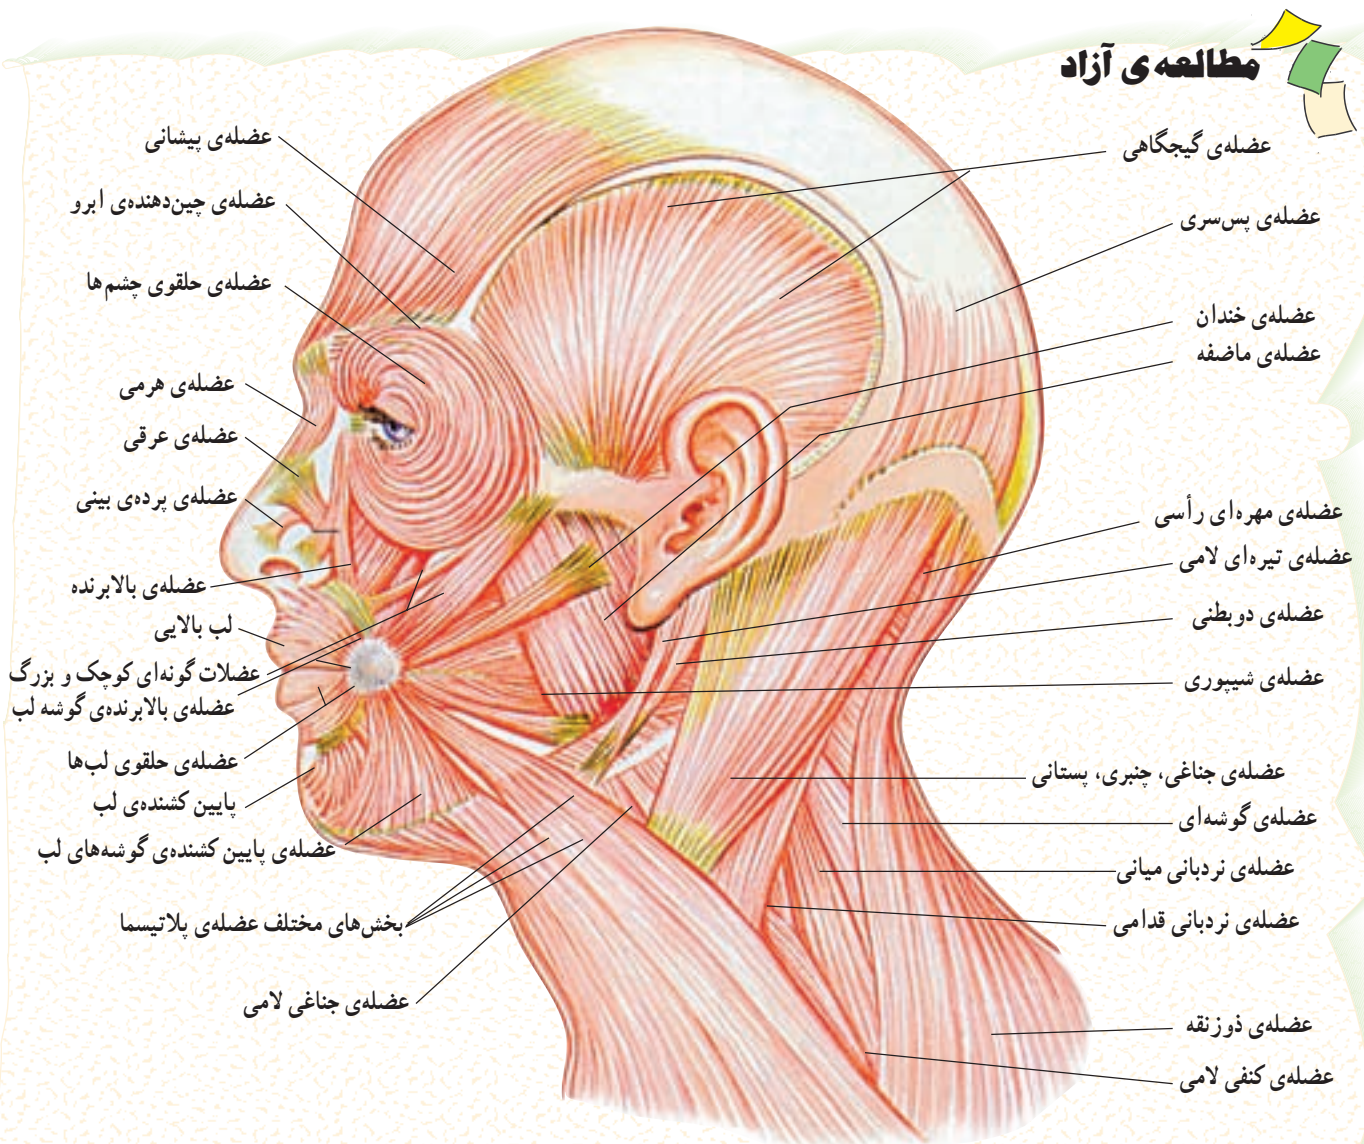 مطالعه‌ی آزاد
عضله‌ی گیجگاهی
عضله‌ی پس‌سری
عضله‌ی خندان
عضله‌ی ماضفه
عضله‌ی مهره‌ای رأسی
عضله‌ی تیره‌ای لامی
عضله‌ی دوبطنی
عضله‌ی شیپوری
عضله‌ی جناغی، چنبری، پستانی
عضله‌ی گوشه‌ای
عضله‌ی نردبانی میانی
عضله‌ی نردبانی قدامی
عضله‌ی ذوزنقه
عضله‌ی کتفی لامی
عضله‌ی پیشانی
عضله‌ی چین‌دهنده‌ی ابرو
عضله‌ی حلقوی چشم‌ها
عضله‌ی هرمی
عضله‌ی عرقی
عضله‌ی پرده‌ی بینی
عضله‌ی بالابرنده
لب بالایی
عضلات گونه‌ای کوچک و بزرگ
عضله‌ی بالابرنده‌ی گوشه لب
عضله‌ی حلقوی لب‌ها
پایین کشنده‌ی لب
عضله‌ی پایین کشنده‌ی گوشه‌های لب
بخش‌های مختلف عضله‌ی پلاتیسما
عضله‌ی جناغی لامی